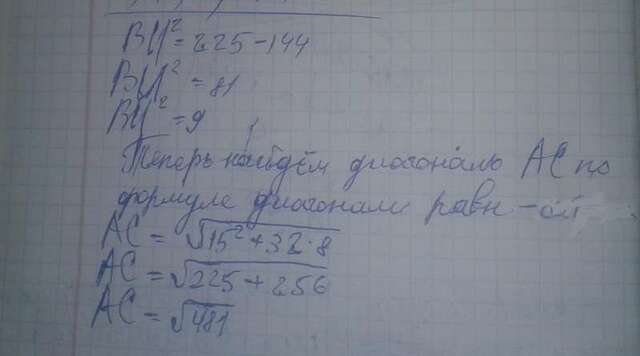 ВН²=225-144
ВН²=81
ВН²=9
Теперь найдём диагональ АС по
формуле диагонали равн-ой
АС = √15²+32·8
АС = √225+256
АС = √481